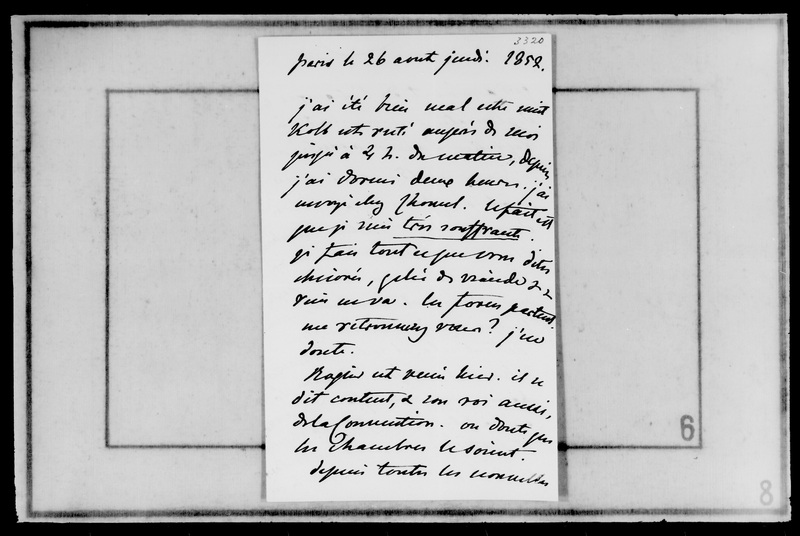 3320
paris le 26 aout jeudi. 1852.
j'ai été bien mal cette nuit
Kolb est resté auprès de moi
jusqu'à 4 h. du matin, depuis
j'ai dormi deux heures. j'ai
envoyé chez Chomel. le fait est
que je suis très souffrante.
je fais tout ce que vous dites
chicorée, gelée de viande &
rien ne va. les forces partent.
me retrouverez vous? j'en
doute.
Rogier est venu hier. il se
dit content, & son roi aussi,
de la Convention. on doute que
les Chambres le soient
depuis toutes les nouvelles
6
8